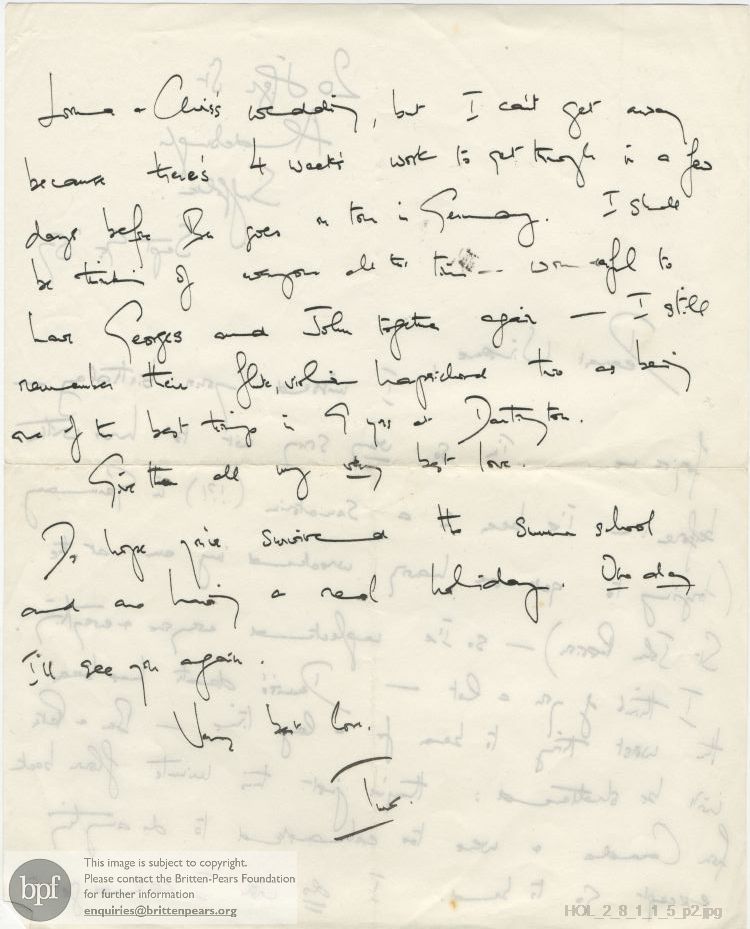 & Chris's wedding, but I can't get away
because there's 4 weeks' work to get through in a few
days before Ben goes on tour in Germany. I shall
be thinking of everyone all the time — wonderful to
have Georges and John together again — I still
remember their flute, violin harpsichord trio as being
one of the best things in 9 yrs at Dartington.
Give them all my very best love.
Do hope you've survived the summer school
and are having a real holiday. One day
I'll see you again.
Very best love.
Imo.
bpf
This image is subject to copyright.
Please contact the Britten-Pears Foundation
for further information
enquiries@brittenpears.org
HOL_2_8_1_1_5_p2.jpg